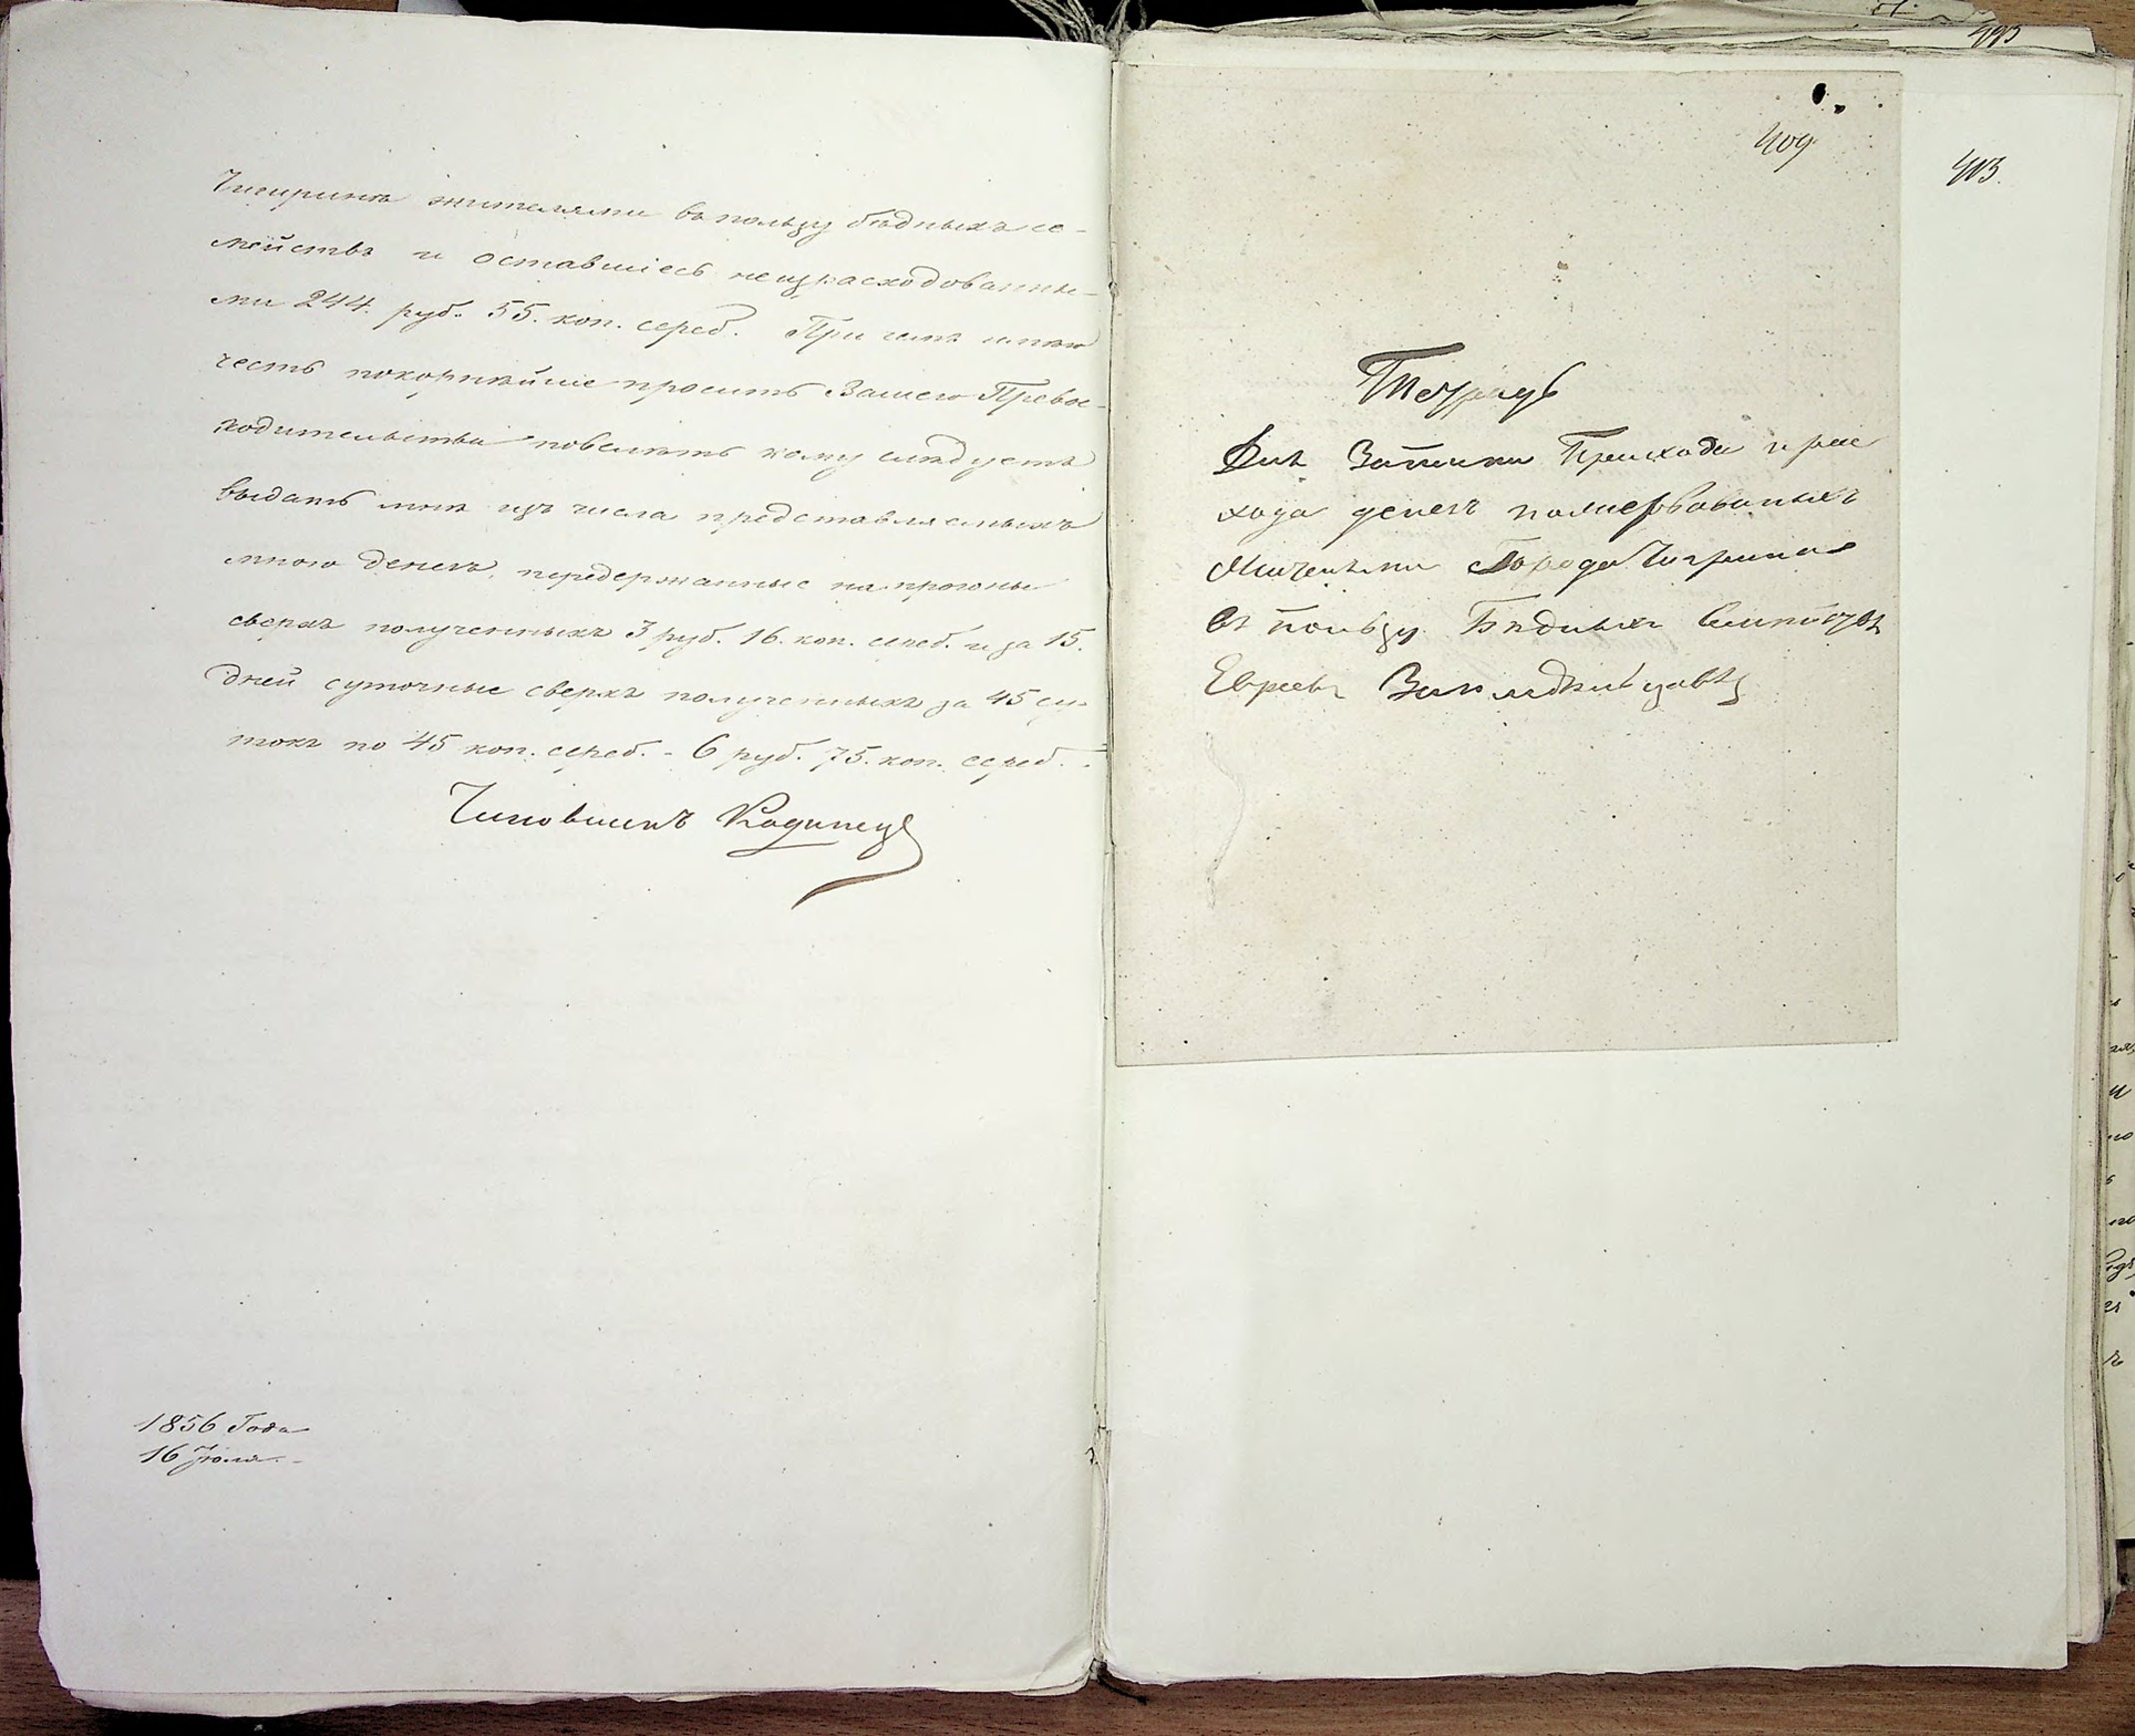 Чигирина жителями въ пользу бѣдныхъ се-
мействъ и оставшіесь неизрасходованны-
ми 244. руб. 55. коп. сереб. При чемъ имѣю
честь покорнѣйше просить Вашего Превос-
ходительства повелѣть кому слѣдуетъ
выдать мнѣ изъ числа представляемыхъ
мною денегъ, передержанные на прогоны
сверхъ полученныхъ 3 руб. 16. коп. сереб. и за 15.
дней суточные сверхъ полученныхъ за 45 су-
токъ по 45 коп. сереб. - 6 руб. 75. коп. сереб. -
Чиновникъ
1856 Года
16 Іюля. -
495
409
413.
Тетрадь
Для Записки Прихода и рас
хода денегъ пожертвованыхъ
Города Чигрина
въ пользу Бѣдныхъ Семѣйствъ
Евреевъ